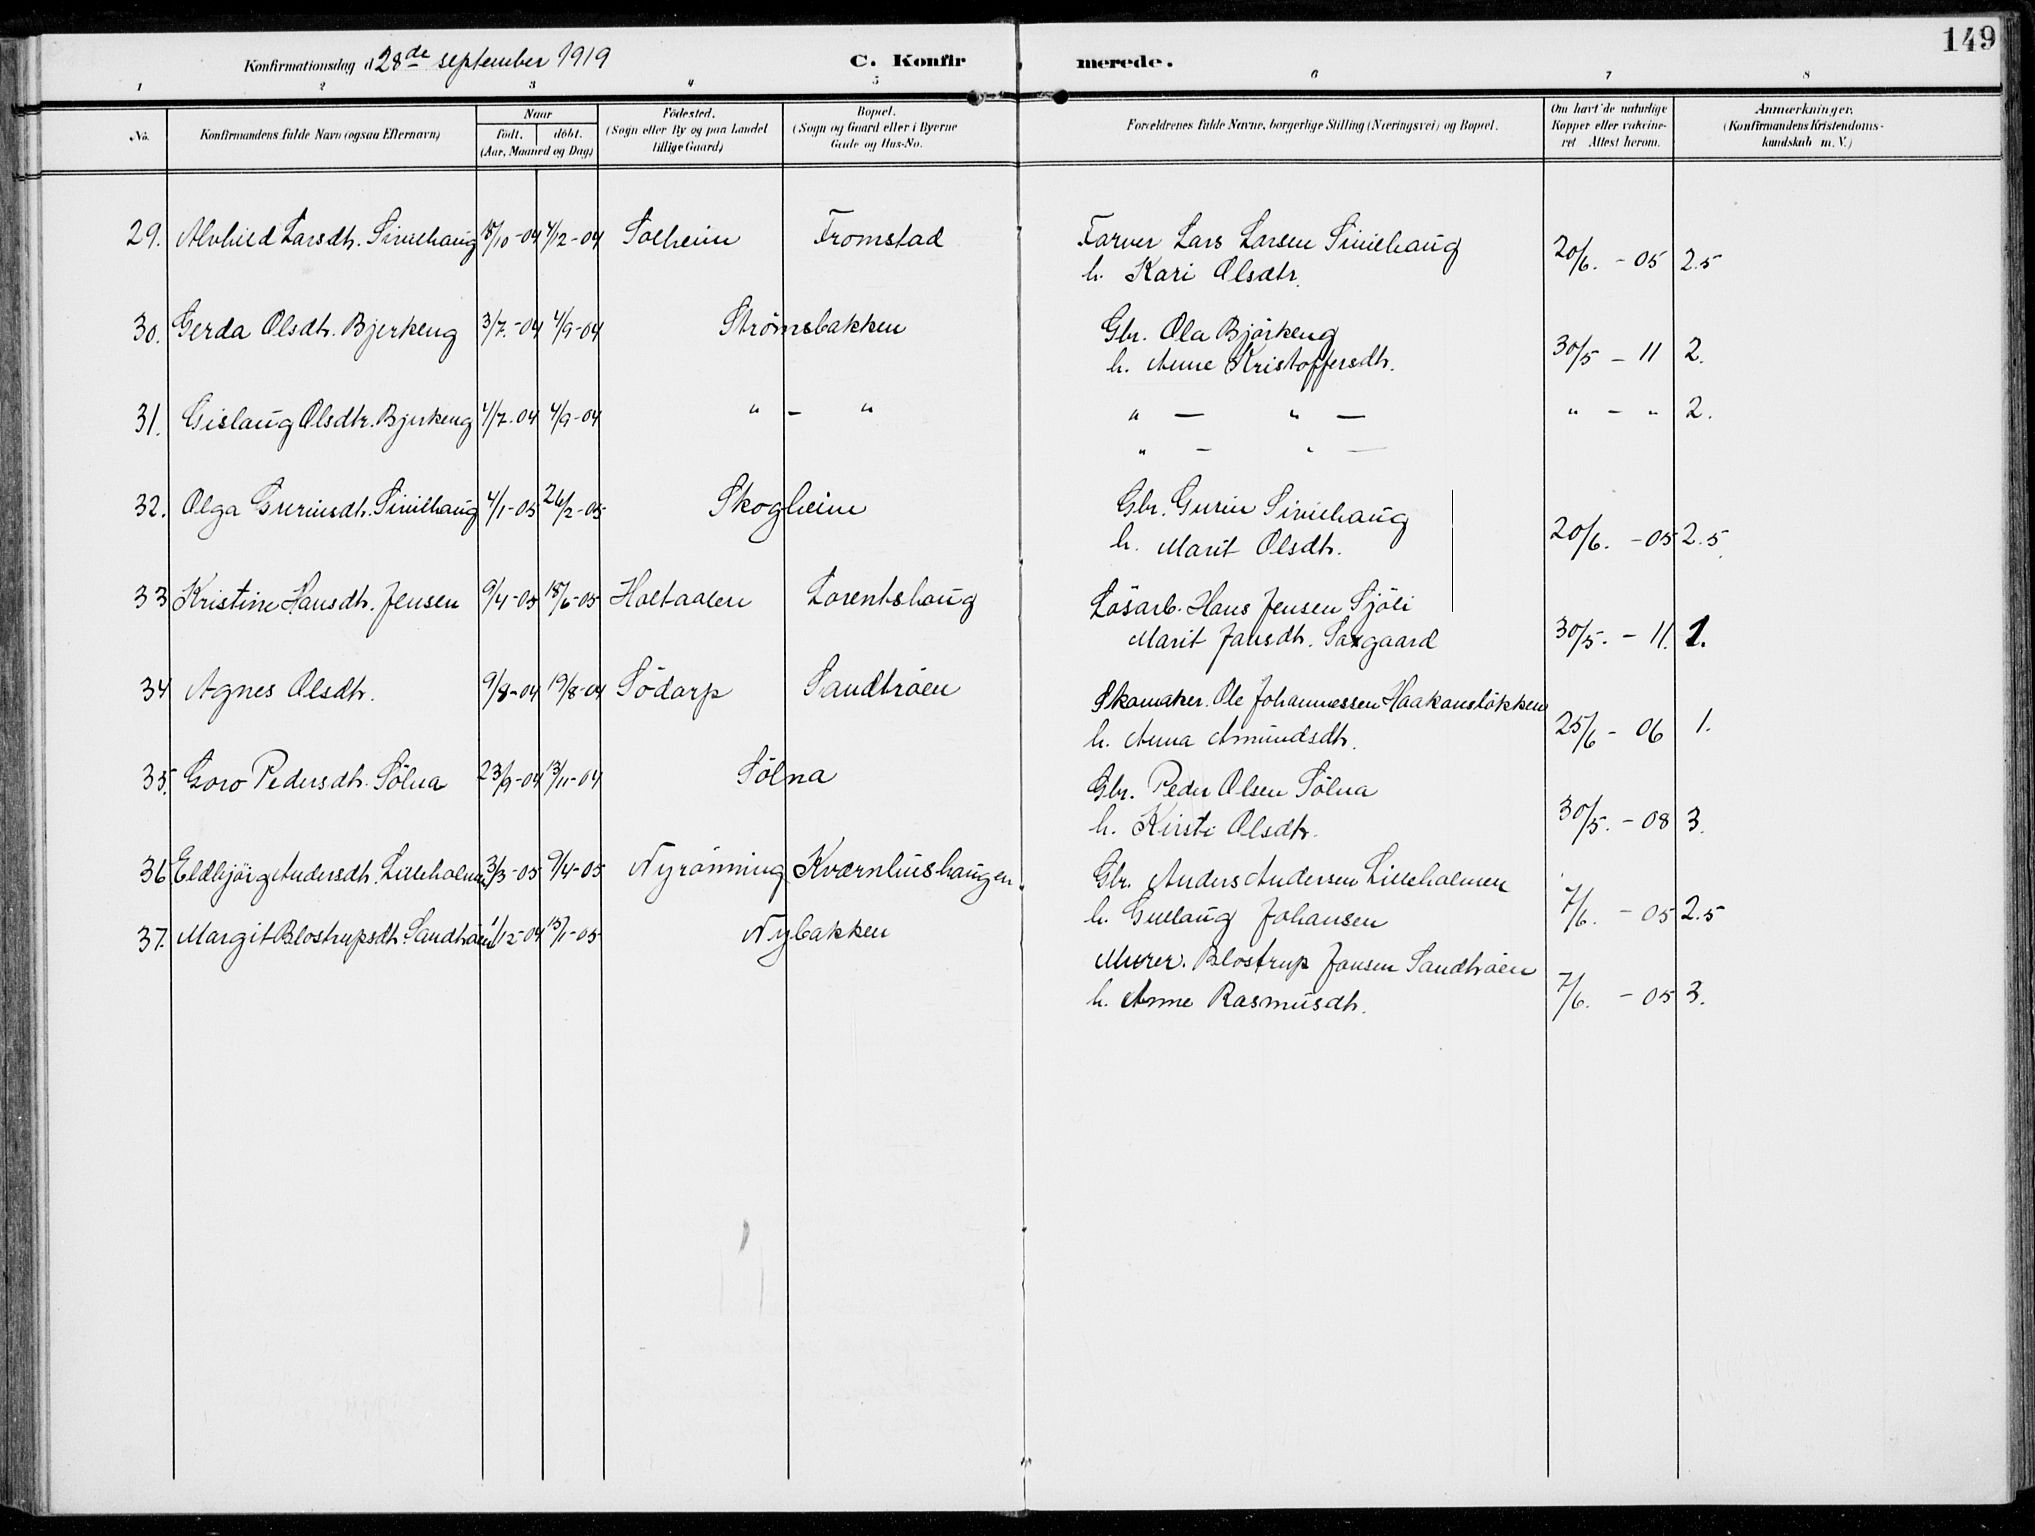 149
Konfirmationsdag d 28de september 1919
C. Konfirmerede.
1 2 3 4 5 6 7 8
No.
Konfirmandens fulde Navn (ogsaa Efternavn)
Naar
født. døbt.
(Aar, Maaned og Dag)
Fødested.
(Sogn eller By og paa Landet
tillige Gaard)
Bopæl.
(Sogn og Gaard eller i Byerne
Gade og Hus-No.
Forældrenes fulde Navne, borgerlige Stilling (Næringsvei) og Bopæl.
Om havt de naturlige
Kopper eller vakcine-
ret Attest herom.
Anmærkninger.
(Konfirmandens Kristendoms-
kundskab m. V.)
29. Alvhild Larsdtr. Sivilhaug 18/10-04 4/12-04 Solheim Fromstad Farver Lars Larsen Sivilhaug
h. Kari Olsdtr. 20/6. - 05 2.5
30. Gerda Olsdtr. Bjerkeng 3/7.-04 4/9-04 Strömsbakken Gbr. Ola Björkeng
h. Anne Kristoffersdtr. 30/5 - 11 2.
31. Gislaug Olsdtr. Bjerkeng 4/7-04 4/9-04 " - " " — " — " - " 2.
" — " —
32. Olga Gurinsdtr. Sivilhaug 4/1-05 26/2-05 Skogheim Gbr. Gurin Sivilhaug
h. Marit Olsdtr. 20/6. - 05 2.5
33 Kristine Hansdtr. Jensen 9/4-05 18/6-05 Holtaalen Lorentshaug Lösarb. Hans Jensen Sjöli
Marit Jansdtr. Saxgaard 30/5. - 11. 1.
34 Agnes Olsdtr. 9/8-04 19/8-04 Södorp Sandtröen Skomaker. Ole Johannessen Haakonslökken
h. Anna Amundsdtr. 25/6 - 06 1.
35. Goro Pedersdtr. Sölna 23/9-04 13/11-04 Sölna Gbr. Peder Olsen Sölna
h. Kirsti Olsdtr. 30/5. - 08 3.
36 Eldbjörg Andersdtr. Lilleholmen 3/3-05 9/4-05 Nyrönning Kværnhushaugen Gbr. Anders Andersen Lilleholmen
h. Gullaug Johansen 7/6. - 05 2.5
37. Margit Blostrupsdtr. Sandtröen 1/12-04 15/1-05 Nybakken Murer. Blostrup Jansen Sandtröen
h. Anne Rasmusdtr. 7/6. - 05 3.